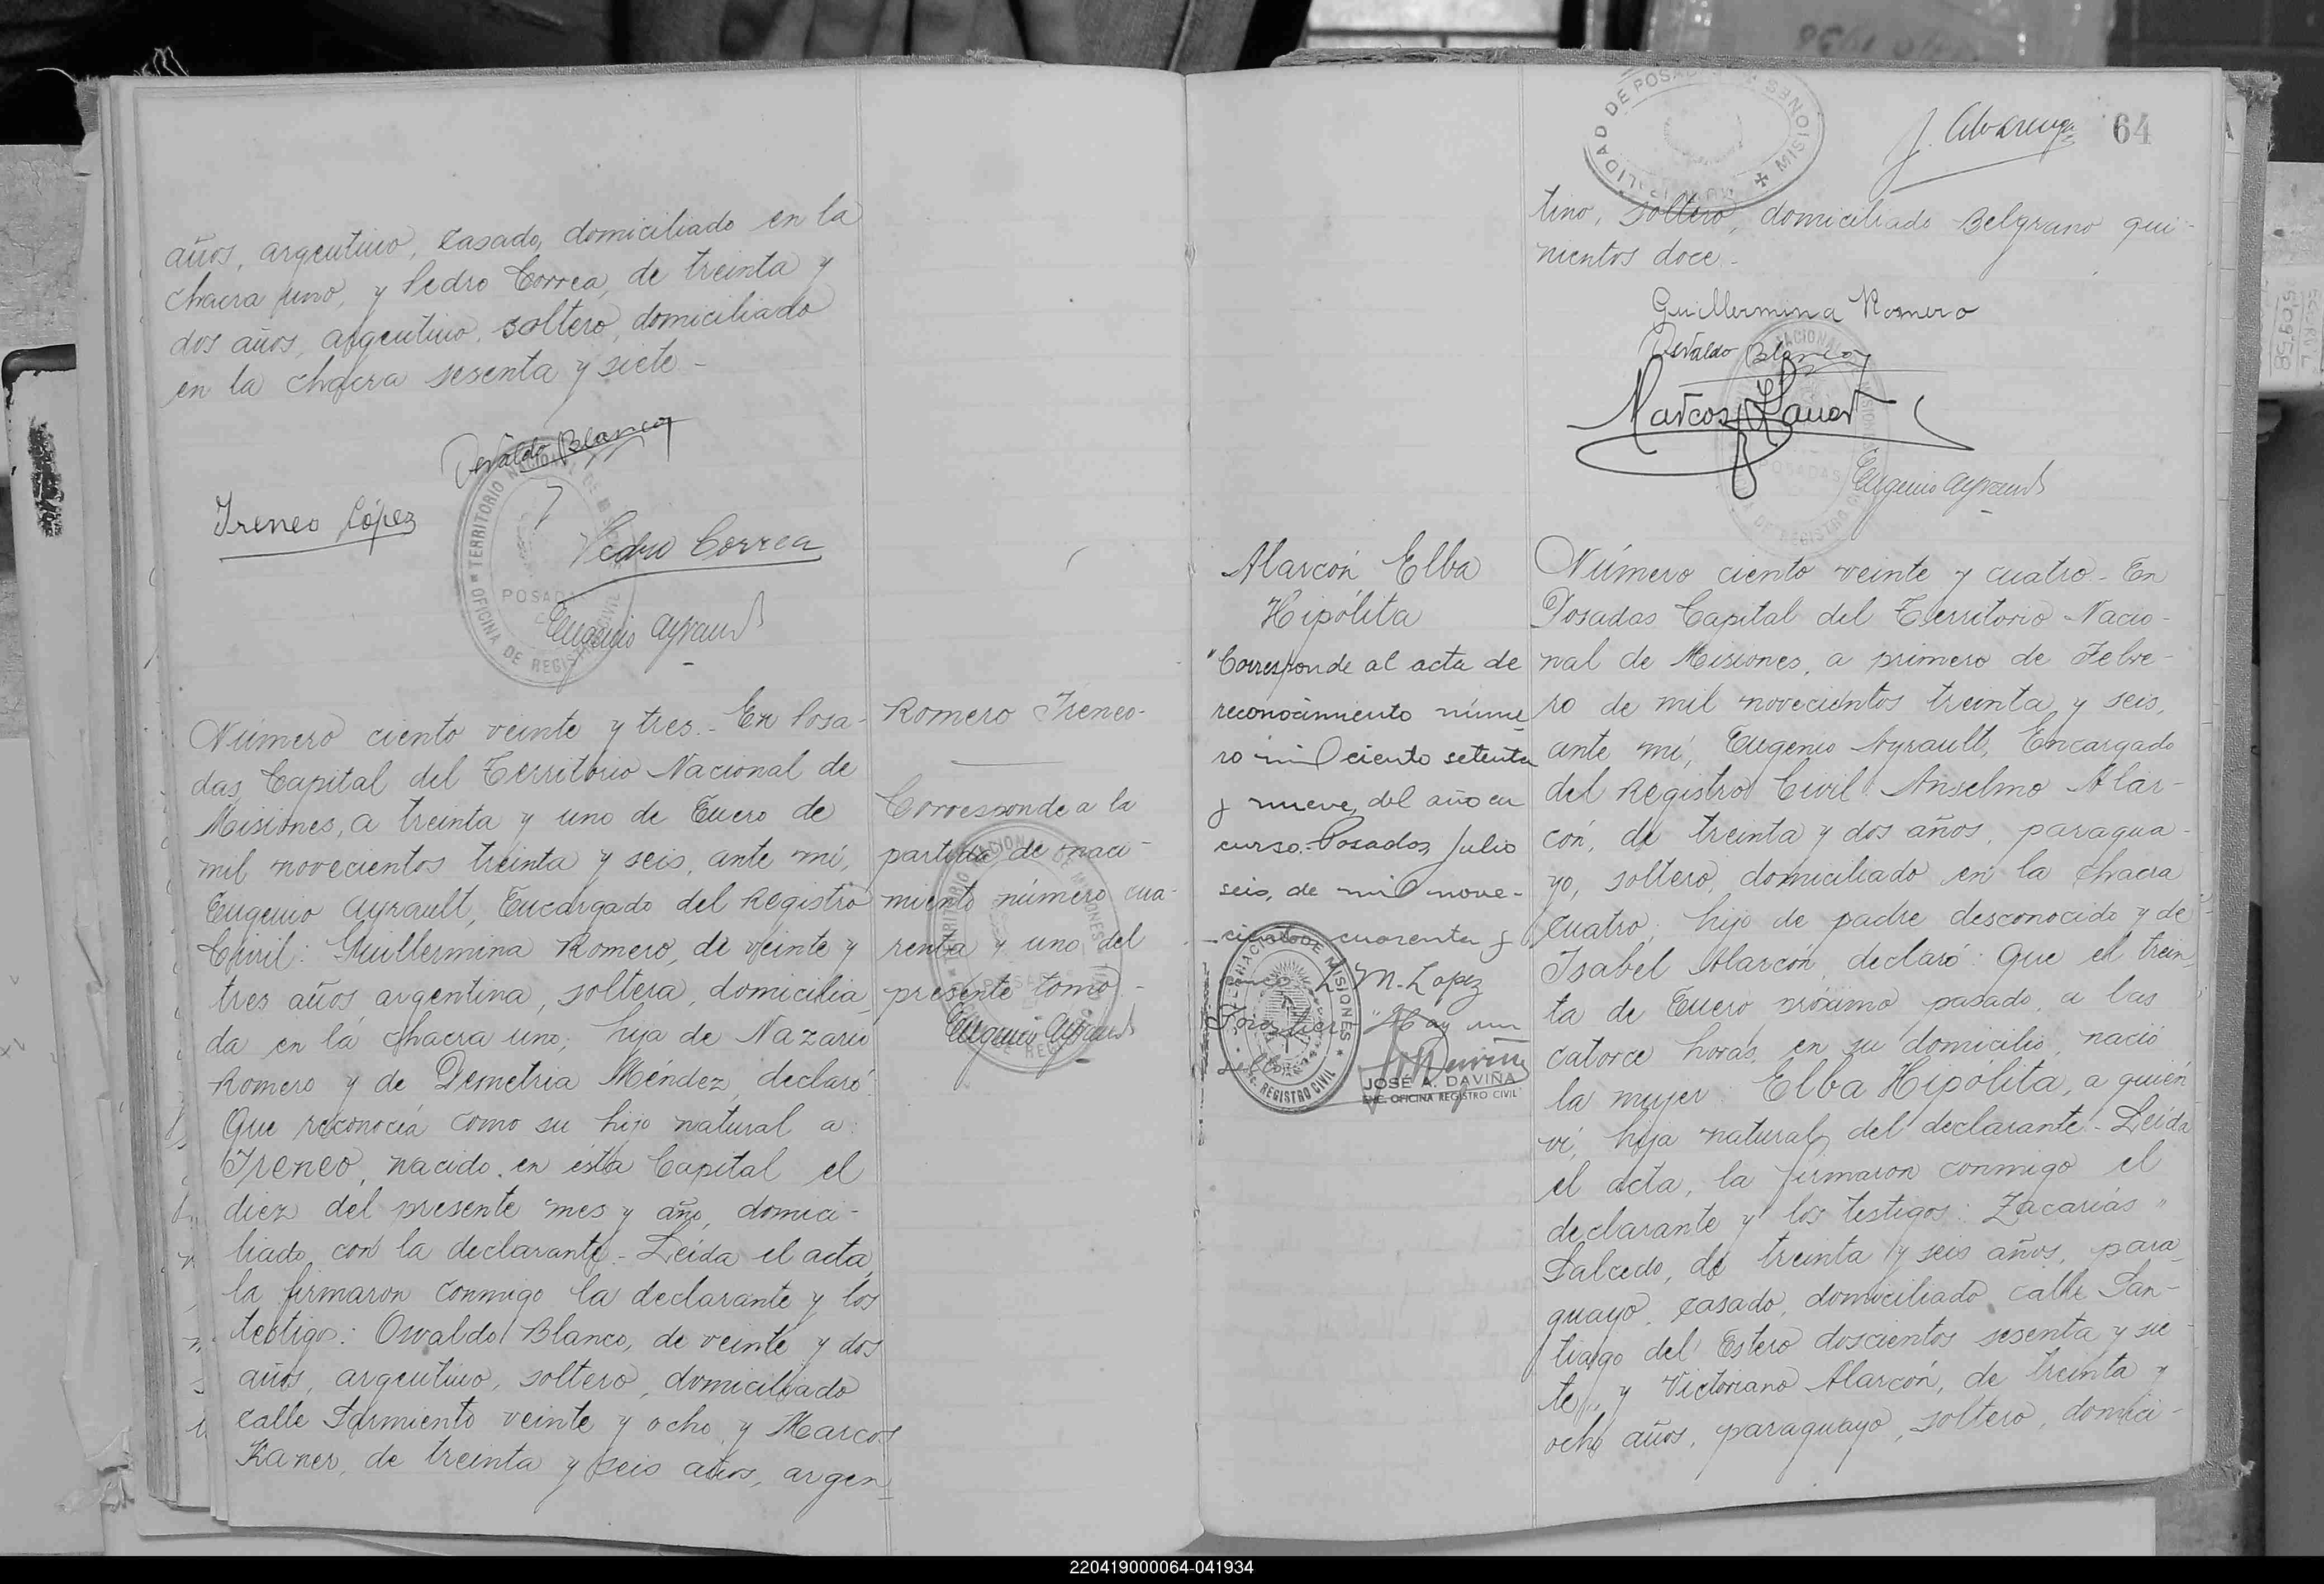 años, argentino, casado, domiciliado en la
chacra uno, y Pedro Correa, de treinta y
dos años, argentino, soltero, domiciliado
en la chacra sesenta y siete -
Osvaldo Blanco
Ireneo López
Pedro Correa
Eugenio Ayrault
TERRITORIO NACIONAL DE MISIONES
OFICINA DE REGISTRO CIVIL
POSADAS
Número ciento veinte y tres.- En Posa-
das Capital del Territorio Nacional de
Misiones, a treinta y uno de Enero de
mil novecientos treinta y seis, ante mí,
Eugenio Ayrault, Encargado del Registro
Civil: Guillermina Romero, de veinte y
tres años argentina, soltera, domicilia
da en la chacra uno; hija de Nazario
Romero y de Demetria Méndez, declaró:
Que reconocía como su hijo natural a:
Ireneo, nacido en esta Capital el
diez del presente mes y año, domici-
liado con la declarante - Leída el acta,
la firmaron conmigo la declarante y los
testigos: Osvaldo Blanco, de veinte y dos
años, argentino, soltero, domiciliado
calle Sarmiento veinte y ocho y Marcos
Kaner, de treinta y seis años, argen-
Romero Ireneo-
Corresponde a la
partida de naci-
miento número cua-
renta y uno del
presente tomo -
Eugenio Ayrault
MUNICIPALIDAD DE POSADAS
MISIONES
64
tino, soltero, domiciliado Belgrano qui-
nientos doce -
Guillermina Romero
Osvaldo Blanco
Marcos Kaner
Eugenio Ayrault
Alarcón Elba
Hipólita
"Corresponde al acta de
reconocimiento núme
ro mil ciento setenta
y nueve, del año en
curso.- Posadas, Julio
seis, de mil nove-
cientos cuarenta y
M. Lopez
"Hay un
sello
JOSÉ A. DAVIÑA
ENC. OFICINA REGISTRO CIVIL
Número ciento veinte y cuatro - En
Posadas Capital del Territorio Nacio-
nal de Misiones, a primero de Febre-
ro de mil novecientos treinta y seis,
ante mí, Eugenio Ayrault, Encargado
del Registro Civil: Anselmo Alar-
cón, de treinta y dos años, paragua-
yo, soltero, domiciliado en la chacra
cuatro; hijo de padre desconocido y de
Isabel Alarcón, declaró: Que el trein-
ta de Enero próximo pasado, a las
catorce horas, en su domicilio, nació
la mujer: Elba Hipólita, a quién
ví, hija natural del declarante - Leída
el acta, la firmaron conmigo el
declarante y los testigos: Zacarías "
Salcedo, de treinta y seis años, para
guayo, casado, domiciliado calle San-
tiago del Estero doscientos sesenta y sie
te, y Victoriano Alarcón, de treinta y
ocho años, paraguayo, soltero, domici-
220419000064-041934